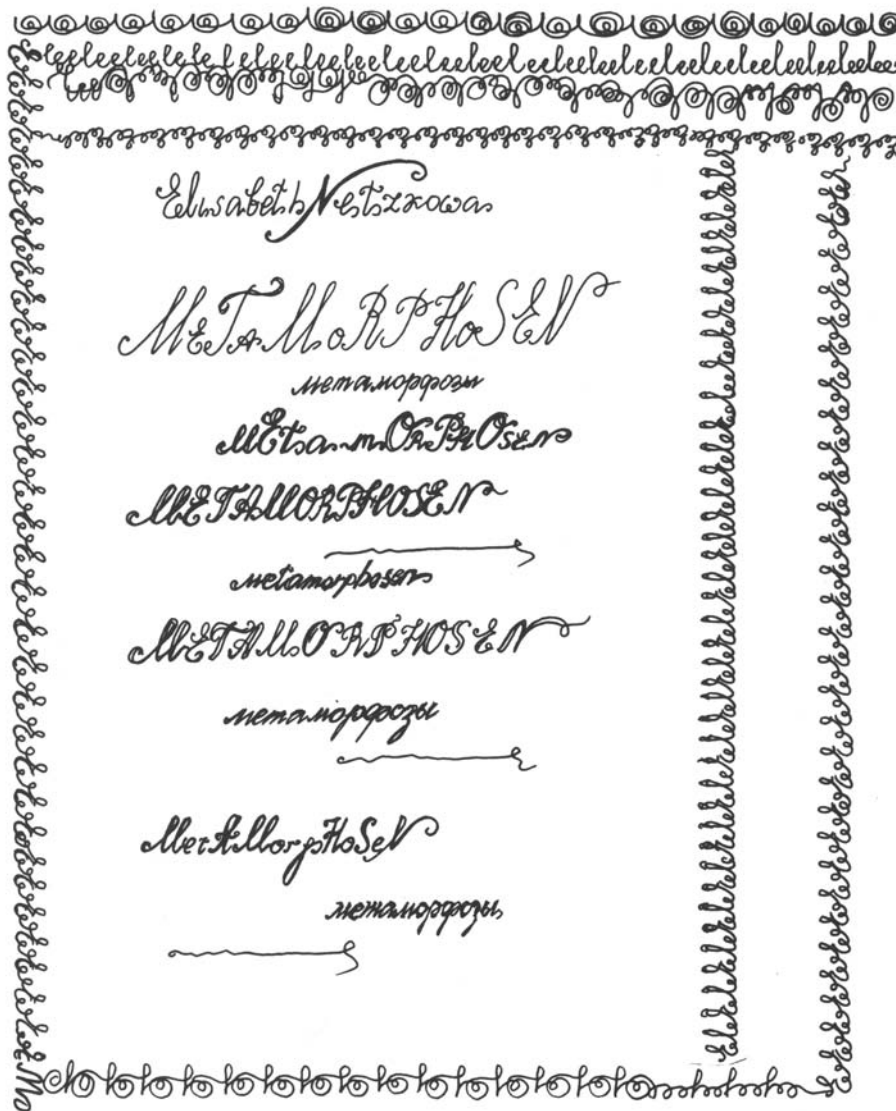 Elisabeth Netszkowa
METAMORPHOSEN
метаморфозы
METamORPHOSEN
METAMORPHOSEN
metamorphosen
METAMORPHOSEN
метаморфозы
MetAMorpHoSeN
метаморфозы